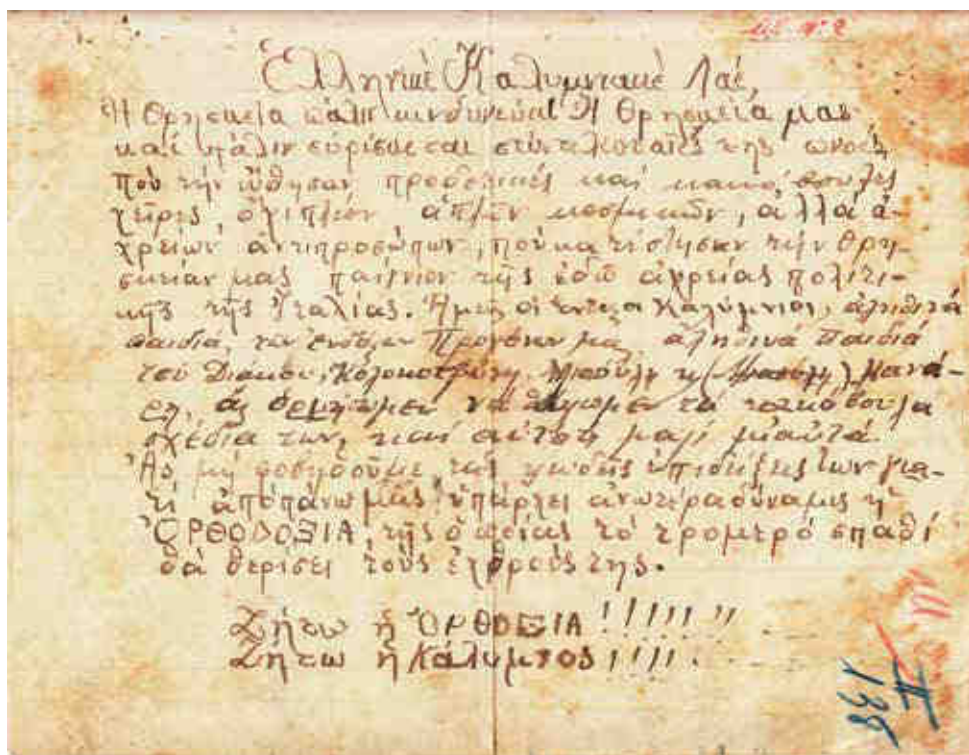 Ἑλληνικὲ Καλυμνιακὲ Λαέ,
Ἡ Θρησκεία πάλιν κινδυνεύει Ἡ Θρησκεία μας
καὶ πάλιν εὑρίσκεται στὶς τῆς
ποὺ τὴν ὤθησαν προδοτικές καὶ κακόβουλες
χεῖρες ὄχι πλέον ἁπλῶν κοσμικῶν, ἀλλὰ ἀ-
χρείων ἀντιπροσώπων, ποὺ κατέστησαν τὴν θρη-
σκείαν μας παίγνιον τῆς ἐδῶ ἀχρείας πολιτι-
κῆς τῆς Ἰταλίας. Ἡμεῖς οἱ Καλύμνιοι, ἀληθινὰ
παιδιὰ τῶν ἐνδόξων Προγόνων μας ἀληθινὰ παιδιὰ
τοῦ Διάκου, Κολοκοτρώνη, Μιαούλη κ Κανά-
ρη, ἂς ὁρμήσωμεν νὰ τὰ κακόβουλα
σχέδιά των, καὶ αὐτοὺς μαζὶ μ'αὐτά.
Ἂς μὴ φοβηθοῦμε τὰς ἐπιδείξεις των για-
τὶ ἀπὸ πάνω μας ὑπάρχει ἀνωτέρα δύναμις ἡ
ὈΡΘΟΔΟΞΙΑ, τῆς ὁποίας τὸ τρομερό σπαθί
θὰ θερίσει τοὺς ἐχθρούς της.
Ζήτω ἡ ὈΡΘΟΔΞΙΑ!!!!! "
Ζήτω ἡ Κάλυμνος!!!!
138